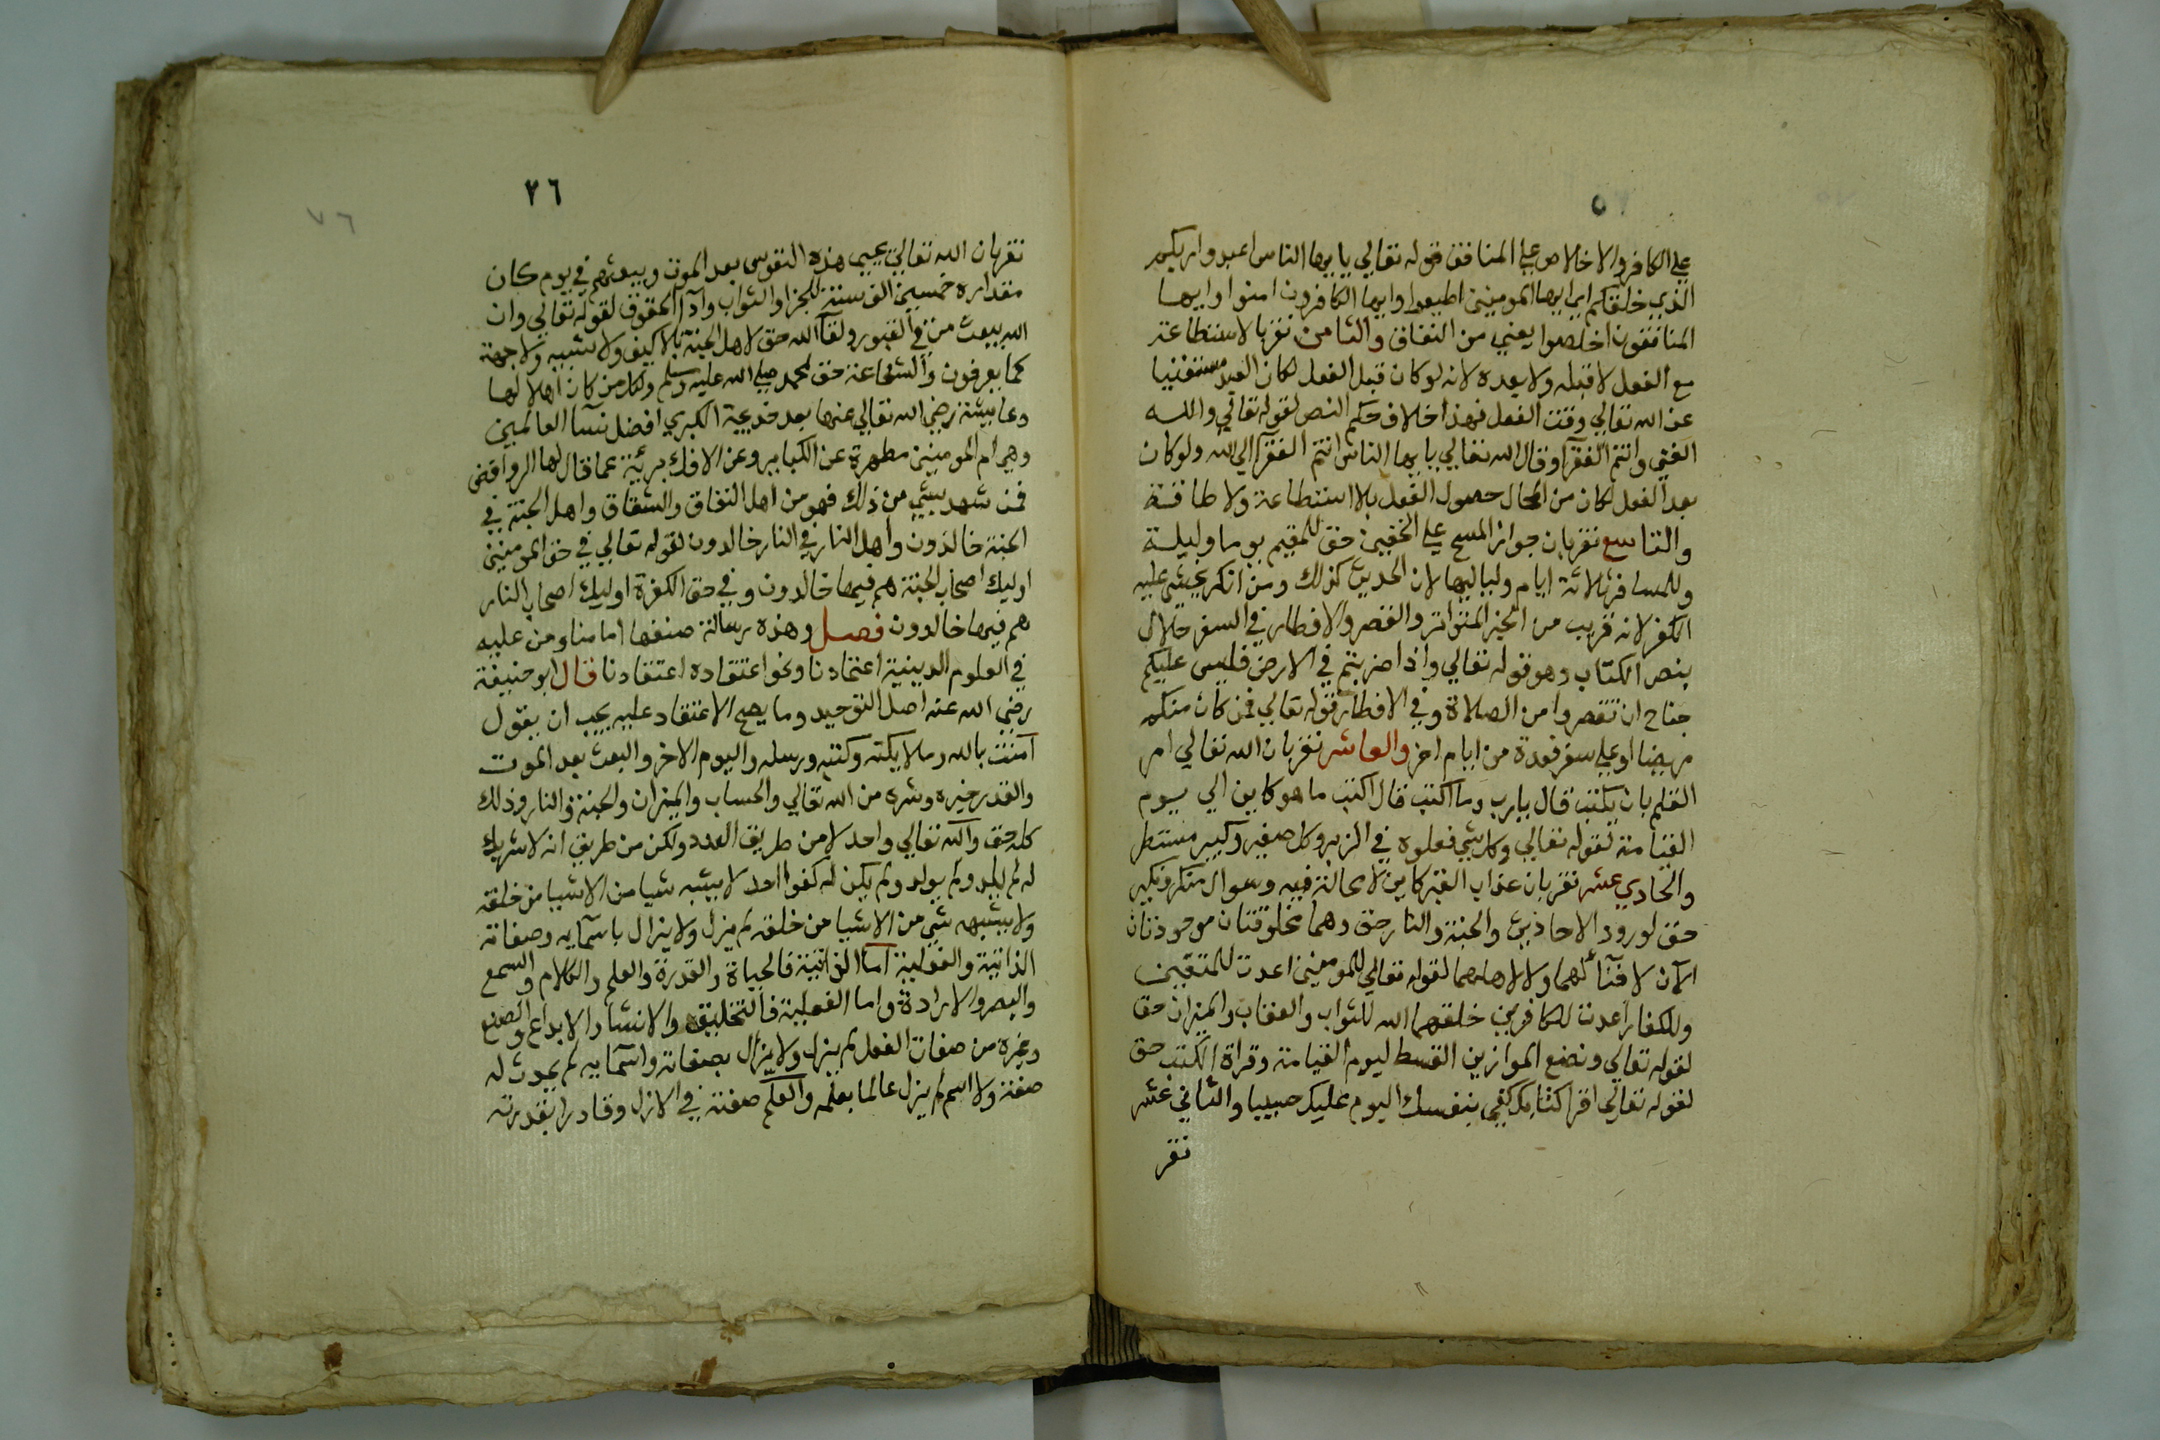 علي الكافر والاخلاص علي المنافق قوله تعالي يايها الناس اعبدوا ربكم
الذي خلقكم اي ايها المومنين اطيعوا وايها الكافرون امنوا وايها
المنافقون اخلصوا يعني من النفاق والثامن نقر بالاستطاعة
مع الفعل لا قبله ولا بعده لانه لو كان قبل الفعل لكان العبد مستغنيا
عن الله تعالي وقت الفعل فهذا خلاف حكم النص لقوله تعالي والله
الغني وانتم الفقرآ وقال الله تعالي يايها الناس انتم الفقرآ الي الله ولو كان
بعد الفعل لكان من المحال حصول الفعل بلا استطاعة ولا طاقة
والتاسع نقر بان جواز المسح علي الخفين حق للمقيم يوما وليلة
وللمسافر ثلاثة ايام ولياليها لان الحديث كذلك ومن انكر يخشي عليه
الكفر لانه قريب من الخبر المتواتر والقصر والافطار في السفر حلال
بنص الكتاب وهو قوله تعالي واذا ضربتم في الارض فليس عليكم
جناح ان تقصروا من الصلاة وفي الافطار قوله تعالي فمن كان منكم
مريضا او علي سفر فعدة من ايام اخر والعاشر نقر بان الله تعالي امر
القلم بان يكتب قال يارب وما اكتب قال اكتب ما هو كاين الي يوم
القيامة لقوله تعالي وكل شي فعلوه في الزبر وكل صغير وكبير مستطر
والحادي عشر نقر بان عذاب القبر كاين لا محالة فيه وسوال منكر ونكير
حق لورود الاحاديث والجنة والنار حق وهما مخلوقتان موجودتان
الآن لا فنآ لهما ولا لاهلهما لقوله تعالي للمومنين اعدت للمتقين
وللكفار اعدت للكافرين خلقهما الله للثواب والعقاب والميزان حق
لقوله تعالي ونضع الموازين القسط ليوم القيامة وقراة الكتب حق
لقوله تعالي اقرا كتابك كفي بنفسك اليوم عليك حسيبا والثاني عشر
نقر
٧٦
٧٦
نقر بان الله تعالي يحيي هذه النفوس بعد الموت ويبعثهم في يوم كان
مقداره خمسين الف سنة للجزا والثواب وادآ الحقوق لقوله تعالي وان
الله يبعث من في القبور ولقآ الله حق لاهل الجنة بلا كيف ولا تشبيه ولا جهة
كما يعرفون والشفاعة حق لمحمد صلي الله عليه وسلم ولكل من كان اهلا لها
وعايشة رضي الله تعالي عنها بعد خديجة الكبري افضل نسآ العالمين
وهي ام المومنين مطهرة عن الكباير وعن الافك بريئة عما قال لها الروافض
فمن شهد بشي من ذلك فهو من اهل النفاق والشقاق واهل الجنة في
الجنة خالدون واهل النار في النار خالدون لقوله تعالي في حق المومنين
اوليك اصحاب الجنة هم فيها خالدون وفي حق الكفرة اوليك اصحاب النار
هم فيها خالدون فصل وهذه رسالة صنفها امامنا ومن عليه
في العلوم الدينية اعتمادنا ونحو اعتقاده اعتقادنا قال ابو حنيفة
رضي الله عنه اصل التوحيد وما يصح الاعتقاد عليه يجب ان يقول
آمنت بالله وملايكته وكتبه ورسله واليوم الاخر والبعث بعد الموت
والقدر خيره وشره من الله تعالي والحساب والميزان والجنة والنار وذلك
كله حق والله تعالي واحد لا من طريق العدد ولكن من طريق انه لا شريك
له لم يلد ولم يولد ولم يكن له كفوا احد لا يشبه شيا من الاشيا من خلقه
ولا يشبهه شي من الاشيا من خلقه لم يزل ولا يزال باسمآيه وصفاته
الذاتية والفعلية اما الذاتية فالحياة والقدرة والعلم والكلام والسمع
والبصر والارادة واما الفعلية فالتخليق والانشا والابداع والصنع
وغيره من صفات الفعل لم يزل ولا يزال بصفاته واسمآيه لم يحدث له
صفة ولا اسم لم يزل عالما بعلمه والعلم صفته في الازل وقادرا بقدرته